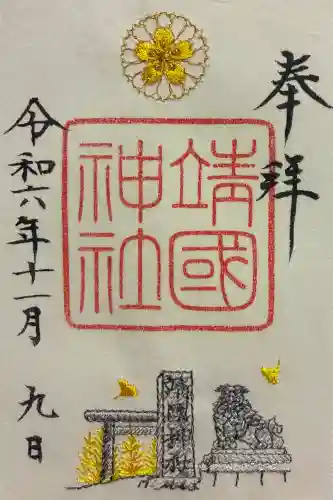 奉拝
靖國
神社
令和六年十一月 九日
靖國神社